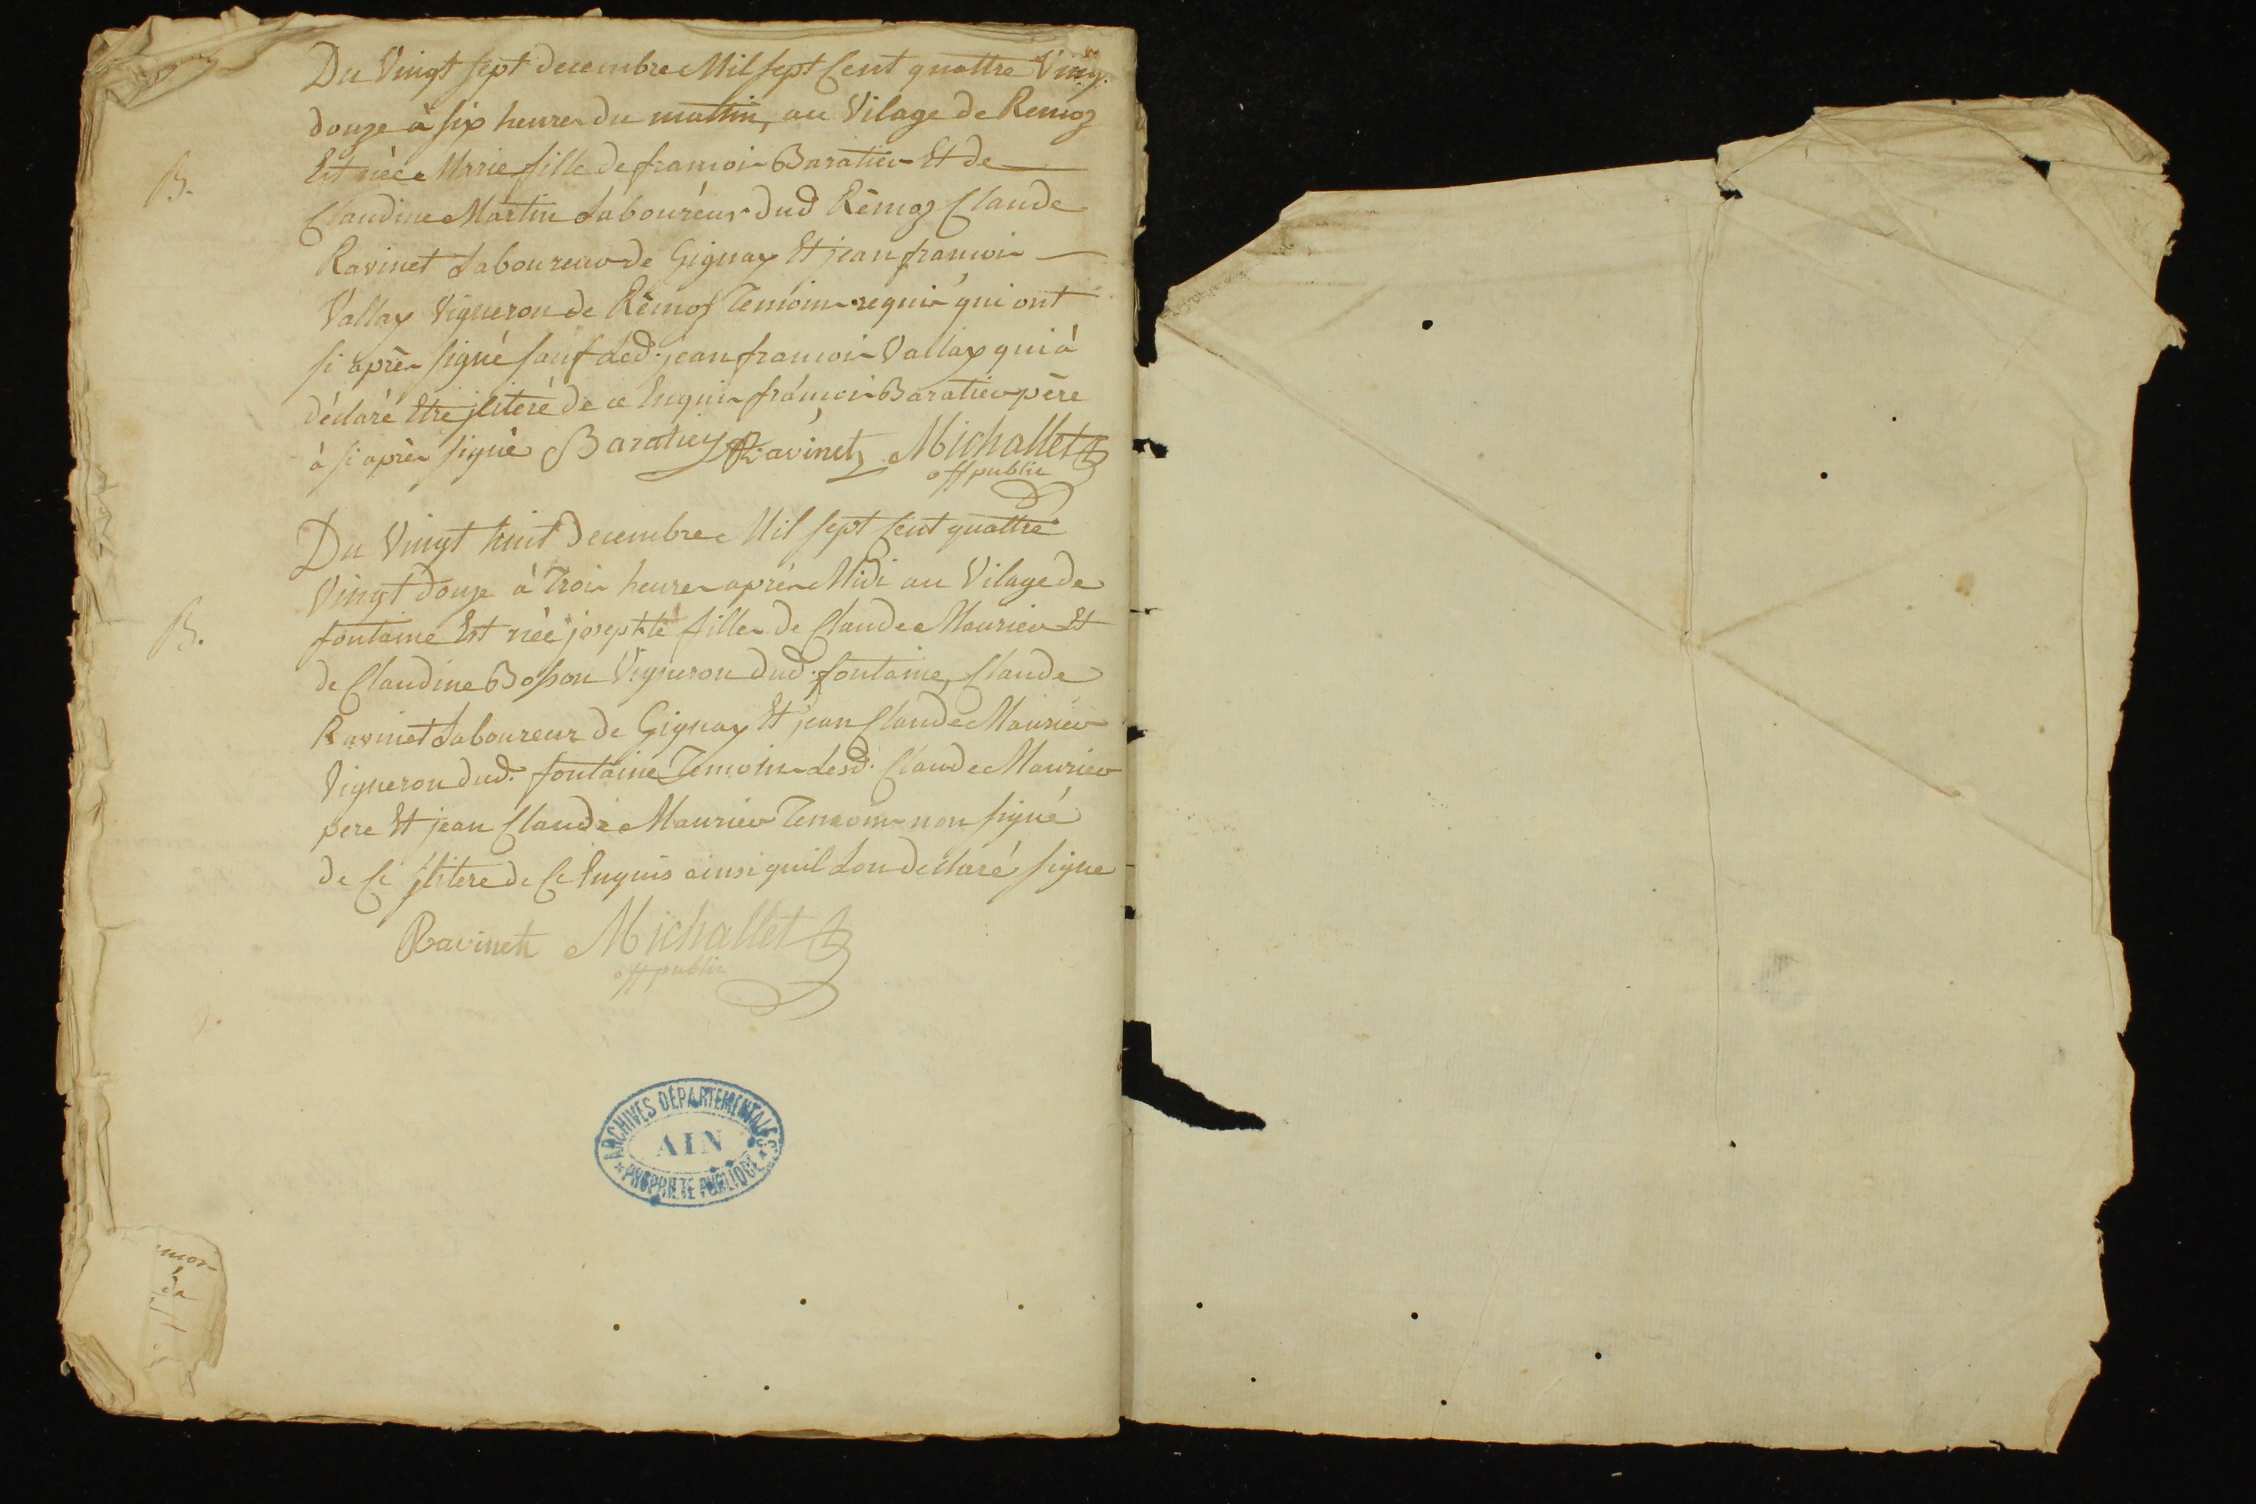 Du Vingt sept decembre Mil sept Cent quattre Vingt
douze à six heures du mattin, au Vilage de Remoz
B.
Est née Marie fille de francois Baratier Et de
Claudine Martin Laboureur dud Rémoz Claude
Ravinet Laboureur de Gignay Et jean francois
Vallay Vigneron de Rémoz Temoins requis qui ont
si après signé sauf led. jean francois Vallay qui à
déclaré Etre jlliteré de ce Enquis francois Baratier père
à si après signé Baratier Ravinet Michallet
off public
Du Vingt huit Decembre Mil sept Cent quattre
Vingt Douze à Trois heures après Midi au Vilage de
B.
fontaine Est née josephte fille de Claude Maurier Et
de Claudine Bosson Vigneron dud. fontaine, Claude
Ravinet Laboureur de Gignay Et jean Claude Maurier
Vigneron dud. fontaine Temoins lesd. Claude Maurier
pere Et jean Claude Maurier Temoins non signé
de Ce jlitere de Ce Enquis ainsi quil Lon declaré signe
Ravinet Michallet
off public
ARCHIVES DÉPARTEMENTALES
AIN
PROPRIÉTÉ PUBLIQUE